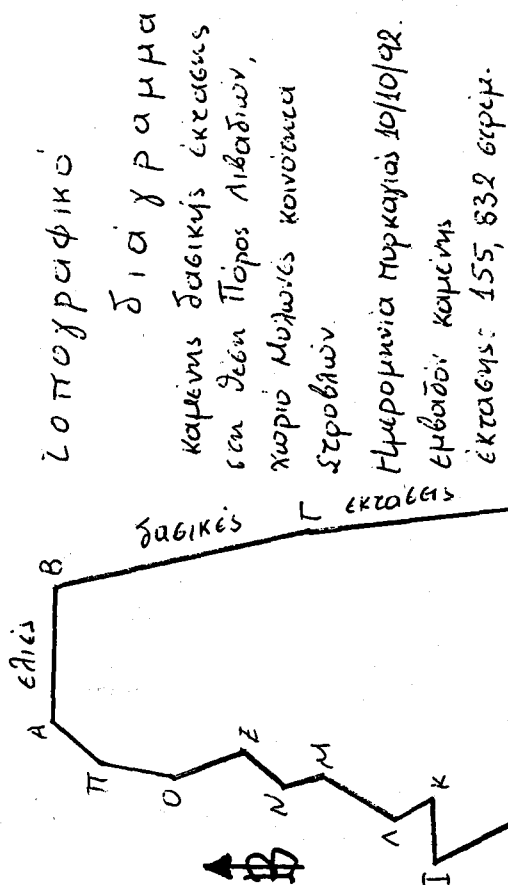 τοπογραφικό
διάγραμμα
καμένης δασικής έκτασης
στη θέση Πόρος Λιβαδιών,
χωριό Μυλωνές κοινότητα
Στροβλών.
Ημερομηνία πυρκαγιάς 10/10/92.
εμβαδόν καμένης
έκτασης: 155,832 στρέμ.
ελιές
δασικές
εκτάσεις
Α
Β
Γ
Π
Ο
Ξ
Ν
Μ
Λ
Κ
Ι
Β